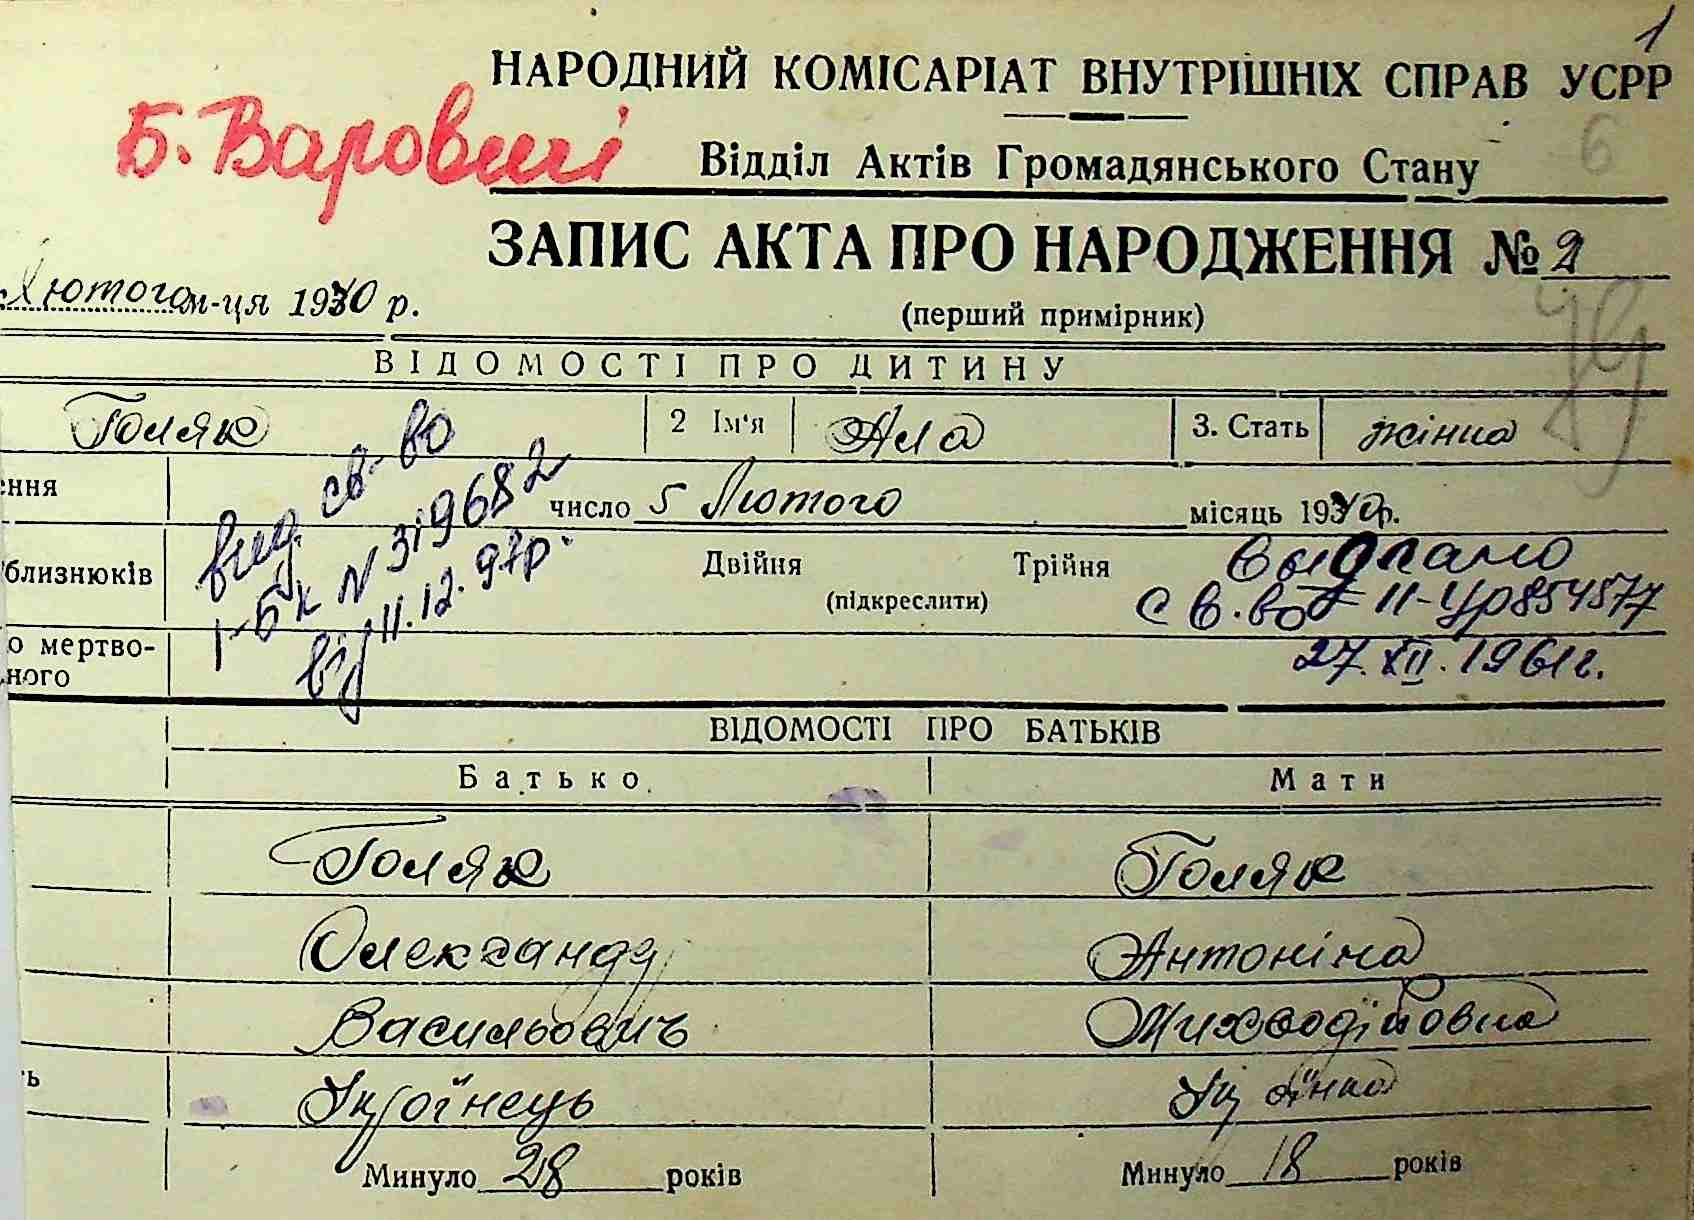 1
НАРОДНИЙ КОМІСАРІАТ ВНУТРІШНІХ СПРАВ УСРР
Б. Варовиці
Відділ Актів Громадянського Стану
6
ЗАПИС АКТА ПРО НАРОДЖЕННЯ № 2
Лютого м-ця 1940 р.
(перший примірник)
ВІДОМОСТІ ПРО ДИТИНУ
Голяк 2 Ім'я Ала 3. Стать жіноча
ення число 5 Лютого місяць 1940 р.
близнюків Двійня Трійня
(підкреслити)
Выдано
св.во II-УР 854577
27.XII.1961г.
вид. св-во
І-БК N 319682
від 11.12.97р.
о мертво-
ного
ВІДОМОСТІ ПРО БАТЬКІВ
Батько Мати
Голяк Голяк
Олександр Антоніна
Васильович Мифодіївна
ь Українець Українка
Минуло 28 років Минуло 18 років